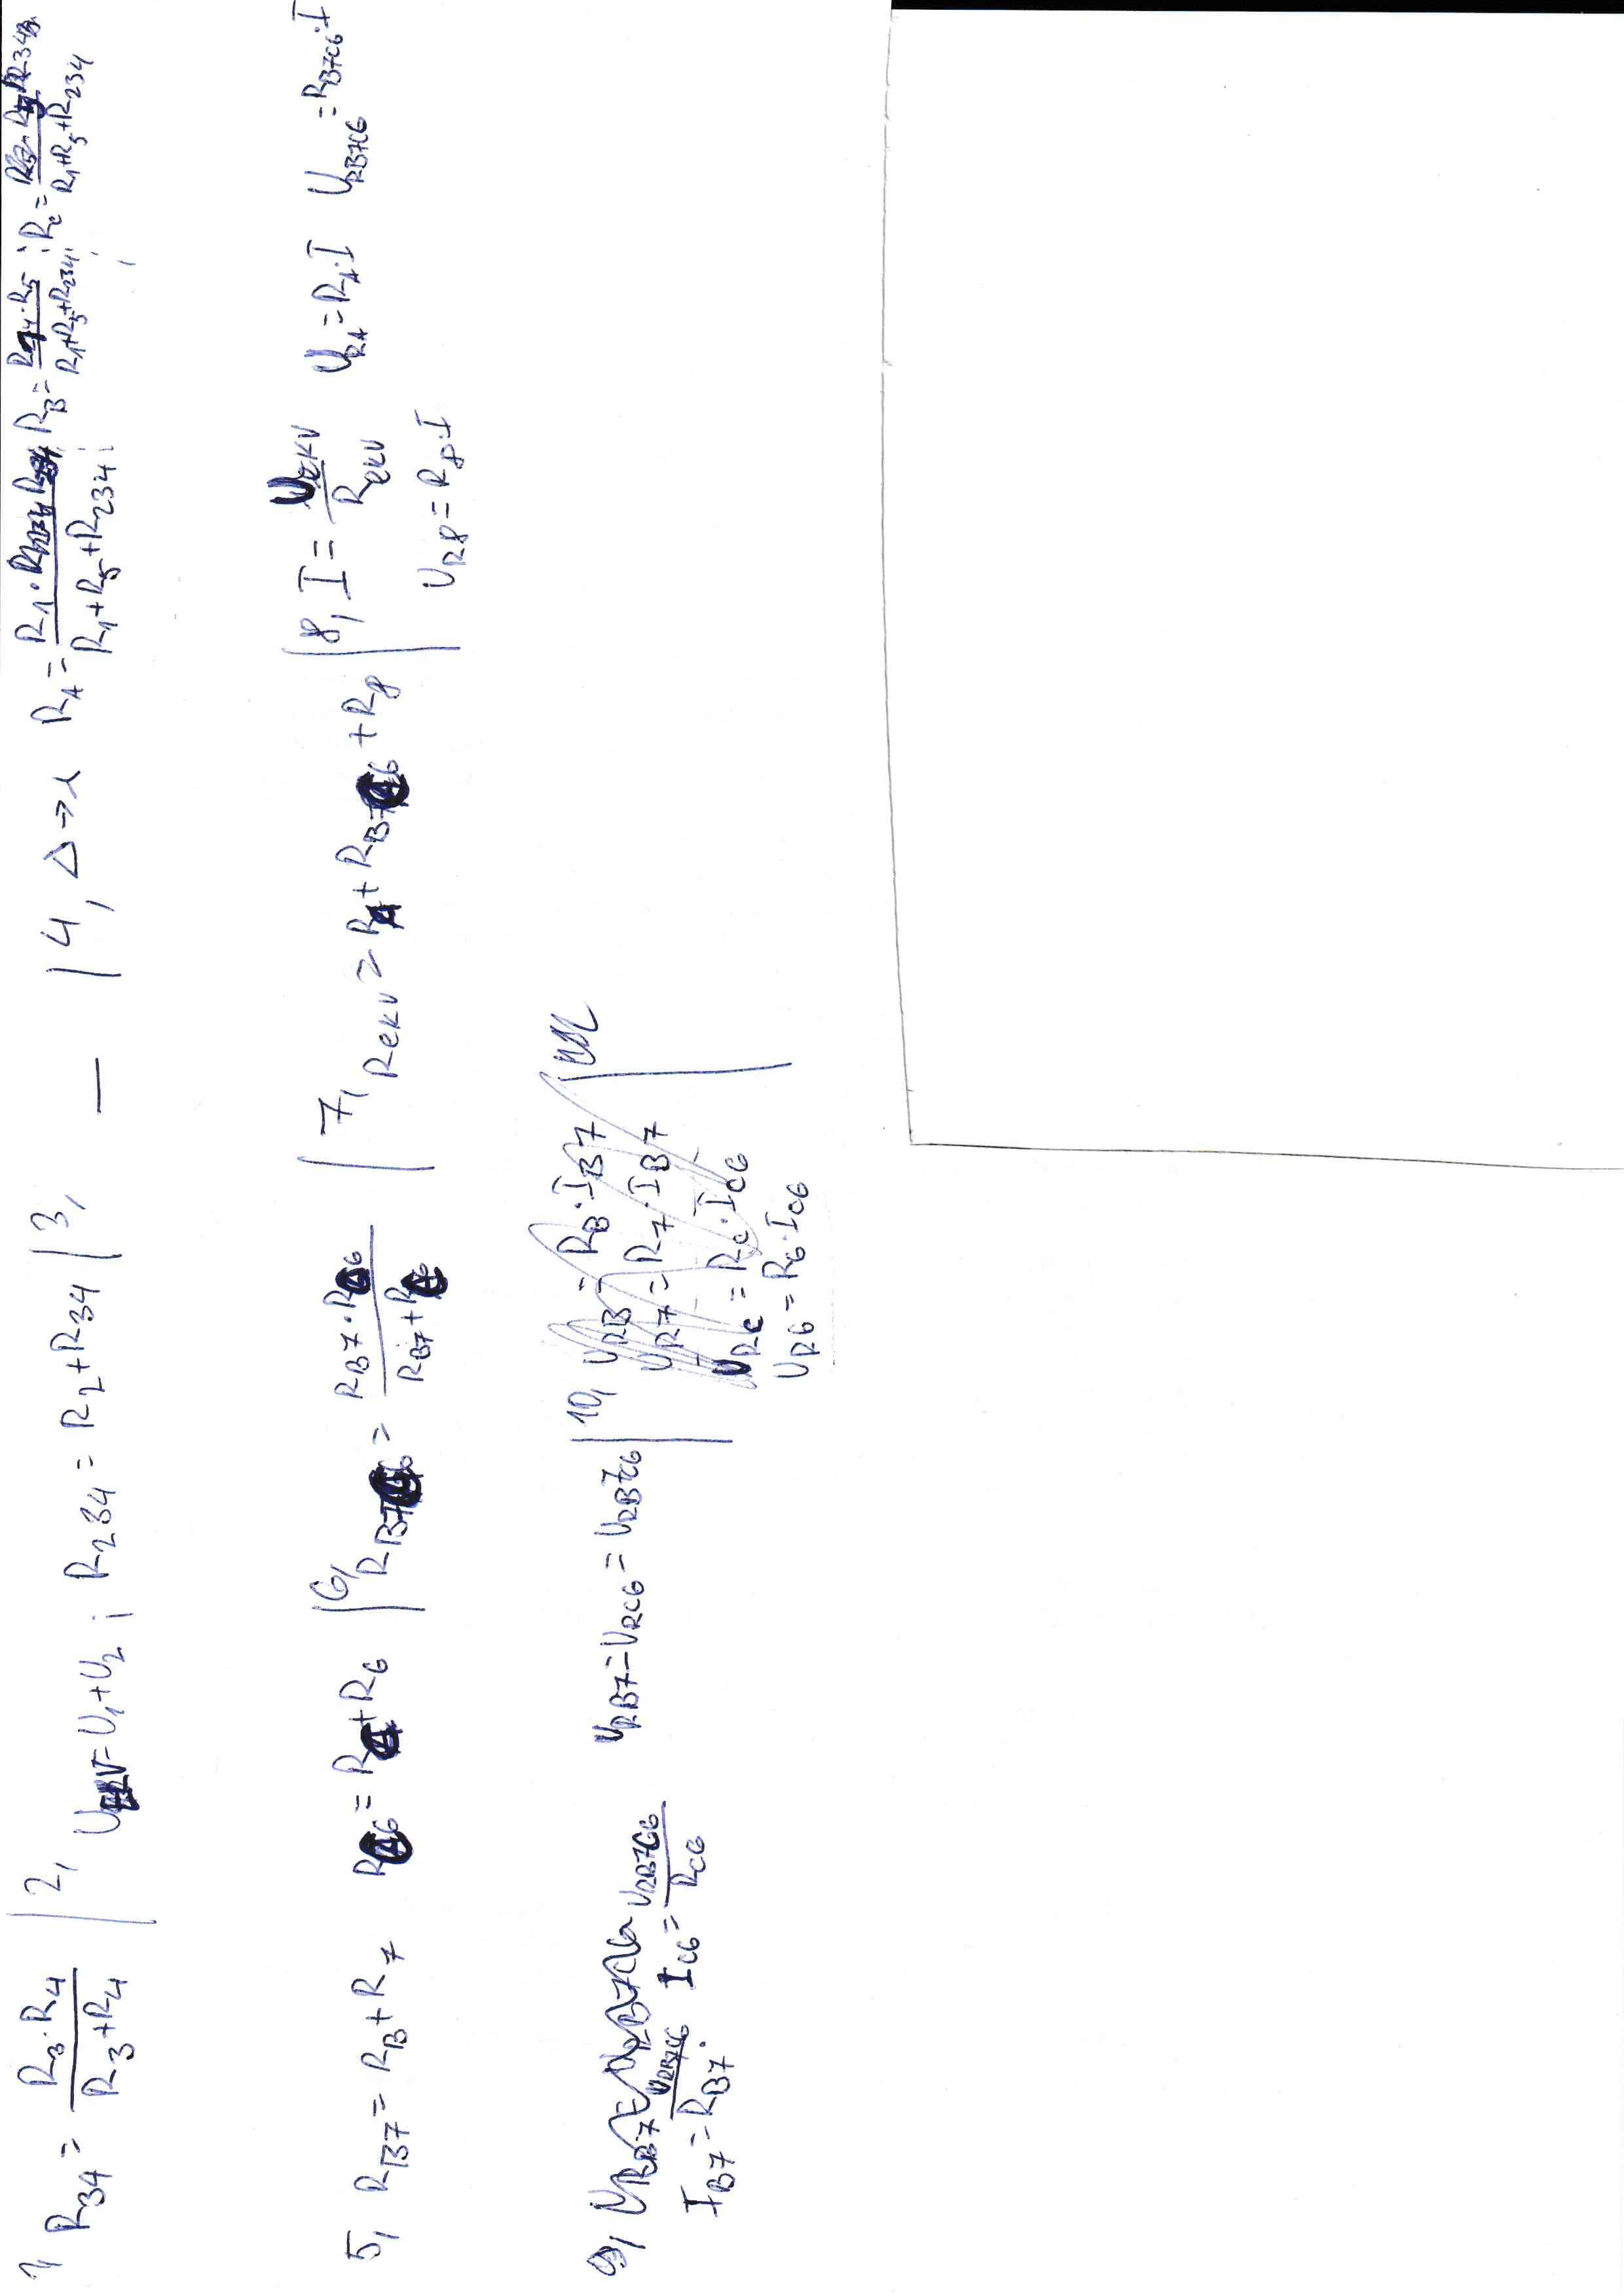 1, R34 = R3·R4 / R3+R4 | 2, U = U1+U2 ; R234 = R2+R34 | 3, — | 4, Δ→λ RA = R1· / R1+R5+R234 ; RB = ·R5 / R1+R5+R234 ; Rc = / R1+R5+R234
5, RB7 = RB+R7 RC6 = RC+R6 | 6, RB7C6 = RB7·RC6 / RB7+RC6 | 7, Rekv = RA+RB7C6+R8 | 8, I = Uekv / Rekv URA = RA·I URB7C6 = RB7C6·I
UR8 = R8·I
9, IB7 = URB7C6 / RB7 IC6 = URB7C6 / RC6 URB7 = URC6 = URB7C6 | 10, URB = RB·IB7
UR7 = R7·IB7
URC = RC·IC6
UR6 = R6·IC6